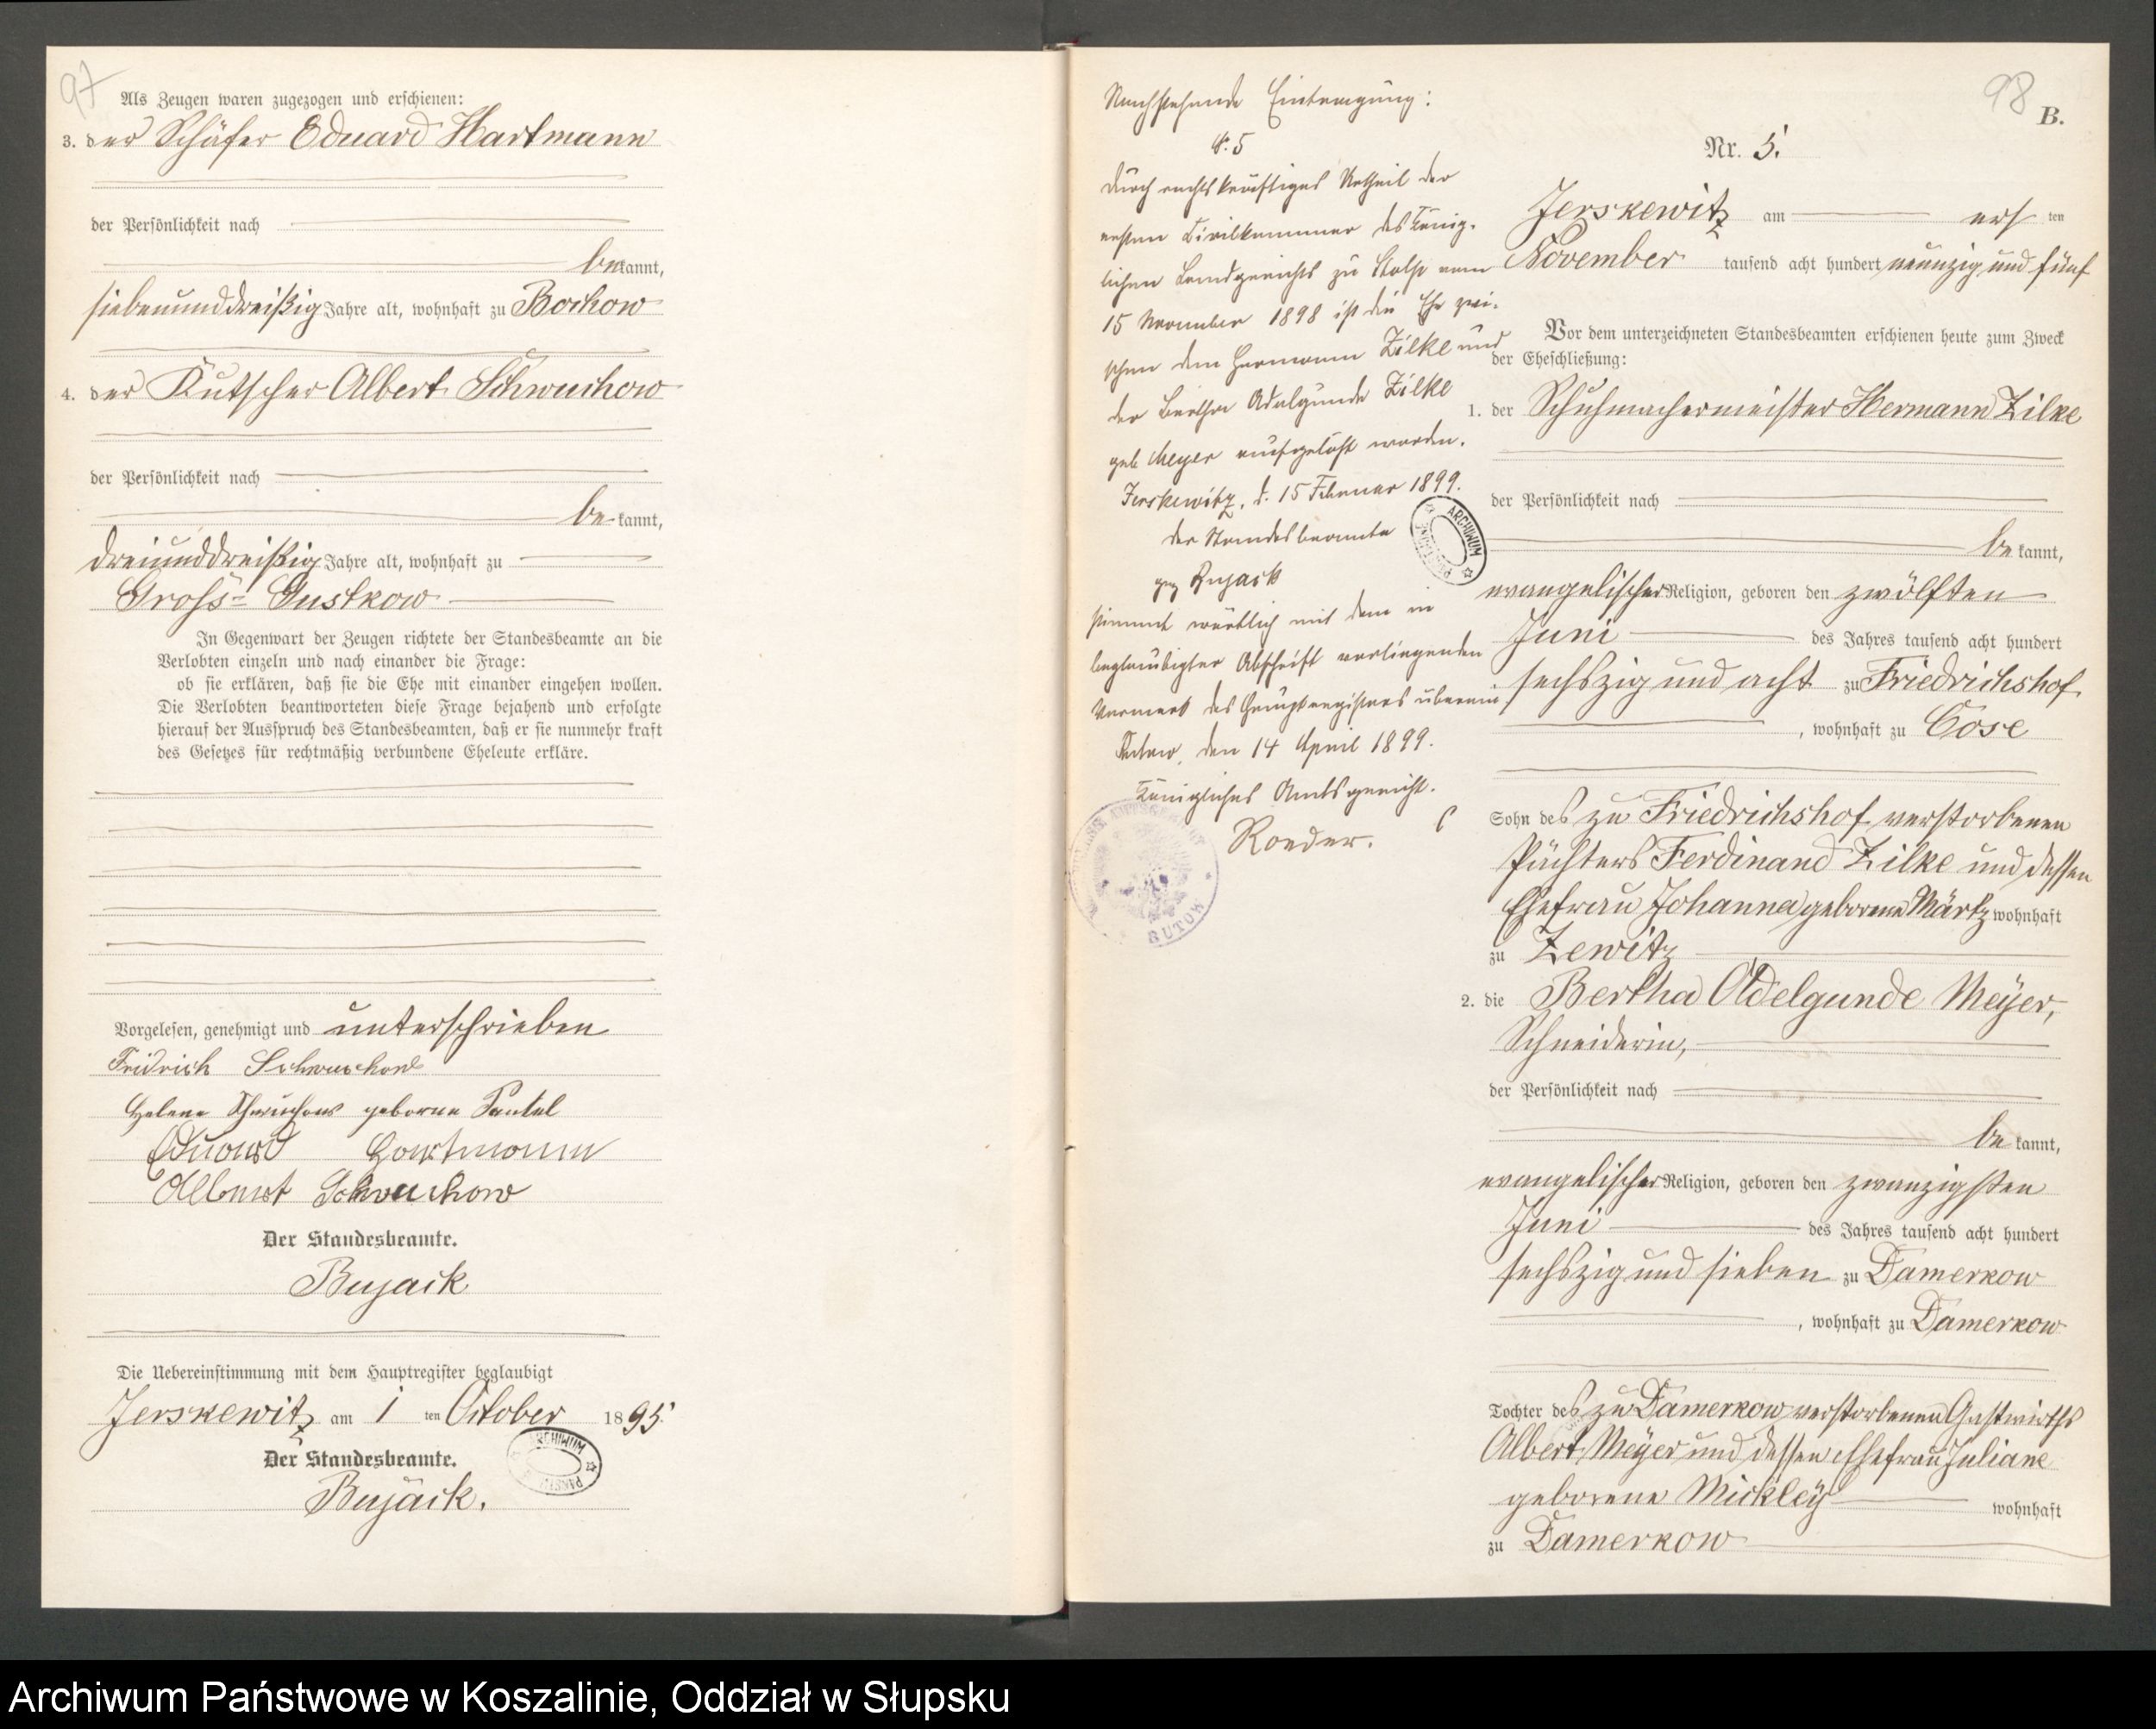 97
Als Zeugen waren zugezogen und erschienen:
3. der Schäfer Eduard Hartmann
der Persönlichkeit nach
bekannt,
siebenunddreißig Jahre alt, wohnhaft zu Bochow
4. der Kutscher Albert Schwuchow
der Persönlichkeit nach
be kannt,
dreiunddreißig Jahre alt, wohnhaft zu
Gross= Gustkow
In Gegenwart der Zeugen richtete der Standesbeamte an die
Verlobten einzeln und nach einander die Frage:
ob sie erklären, daß sie die Ehe mit einander eingehen wollen.
Die Verlobten beantworteten diese Frage bejahend und erfolgte
hierauf der Ausspruch des Standesbeamten, daß er sie nunmehr kraft
des Gesetzes für rechtmäßig verbundene Eheleute erkläre.
Vorgelesen, genehmigt und unterschrieben
Fridrich Schwuchow
Helene Schwuchow geborne Pantel
Eduard Hartmann
Albert Schwuchow
Der Standesbeamte.
Bujack
Die Uebereinstimmung mit dem Hauptregister beglaubigt
Jerskewitz am 1 ten October 1895.
Der Standesbeamte.
Bujack.
ARCHIWUM
98
B.
Nachstehende Eintragung:
№ 5
Durch rechtskräftiges Urtheil der
ersten Civilkammer des König-
lichen Landgerichts zu Stolp vom
15 November 1898 ist die Ehe zwi-
schen dem Hermann Zilke und
der Bertha Adelgunde Zilke
geb Meyer aufgelöst worden.
Jerskewitz, d. 15 Februar 1899.
der Standesbeamte
gez Bujack
stimmt wörtlich mit dem in
beglaubigter Abschrift vorliegenden
Vermerk des Hauptregisters überein
Bütow, den 14 April 1899.
Königliches Amtsgericht.
Roeder.
BUTOW
ARCHIWUM
Nr. 5.
Jerskewitz am ersten
November tausend acht hundert neunzig und fünf
Vor dem unterzeichneten Standesbeamten erschienen heute zum Zweck
der Eheschließung:
1. der Schuhmachermeister Hermann Zilke
der Persönlichkeit nach
be kannt,
evangelischer Religion, geboren den zwölften
Juni des Jahres tausend acht hundert
sechszig und acht zu Friedrichshof
, wohnhaft zu Cose
Sohn des zu Friedrichshof verstorbenen
Pächters Ferdinand Zilke und dessen
Ehefrau Johanna geborene Märtz wohnhaft
zu Zewitz
2. die Bertha Adelgunde Meÿer,
Schneiderin,
der Persönlichkeit nach
be kannt,
evangelischer Religion, geboren den zwanzigsten
Juni des Jahres tausend acht hundert
sechszig und sieben zu Damerkow
, wohnhaft zu Damerkow
Tochter des zu Damerkow verstorbenen Gastwirths
Albert Meÿer und dessen Ehefrau Juliane
geborene Mickleÿ wohnhaft
zu Damerkow
Archiwum Państwowe w Koszalinie, Oddział w Słupsku